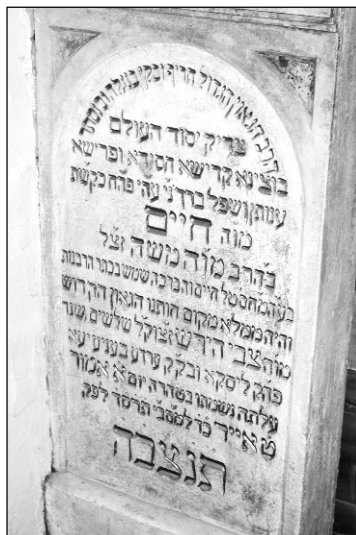 הרב הגאון הגדול חריף ובקי בנגלה ובנסתר
צדיק יסוד העולם
בוצינא קדישא חסידא ופרישא
ענותן ושפל ברך
מו״ה חיים
בהרב מו״ה משה זצ״ל
חיים וברכה שמש בכתר הרבנות
והיה ממלא מקום חותנו הגאון הקדוש
מוה צבי הירש זצוקל שלשים שנה
פהק ליסקא ובקק
עלתה נשמתו בטהרה יום א אמור
ט אייר כד למבי תרסד לפק
תנצבה